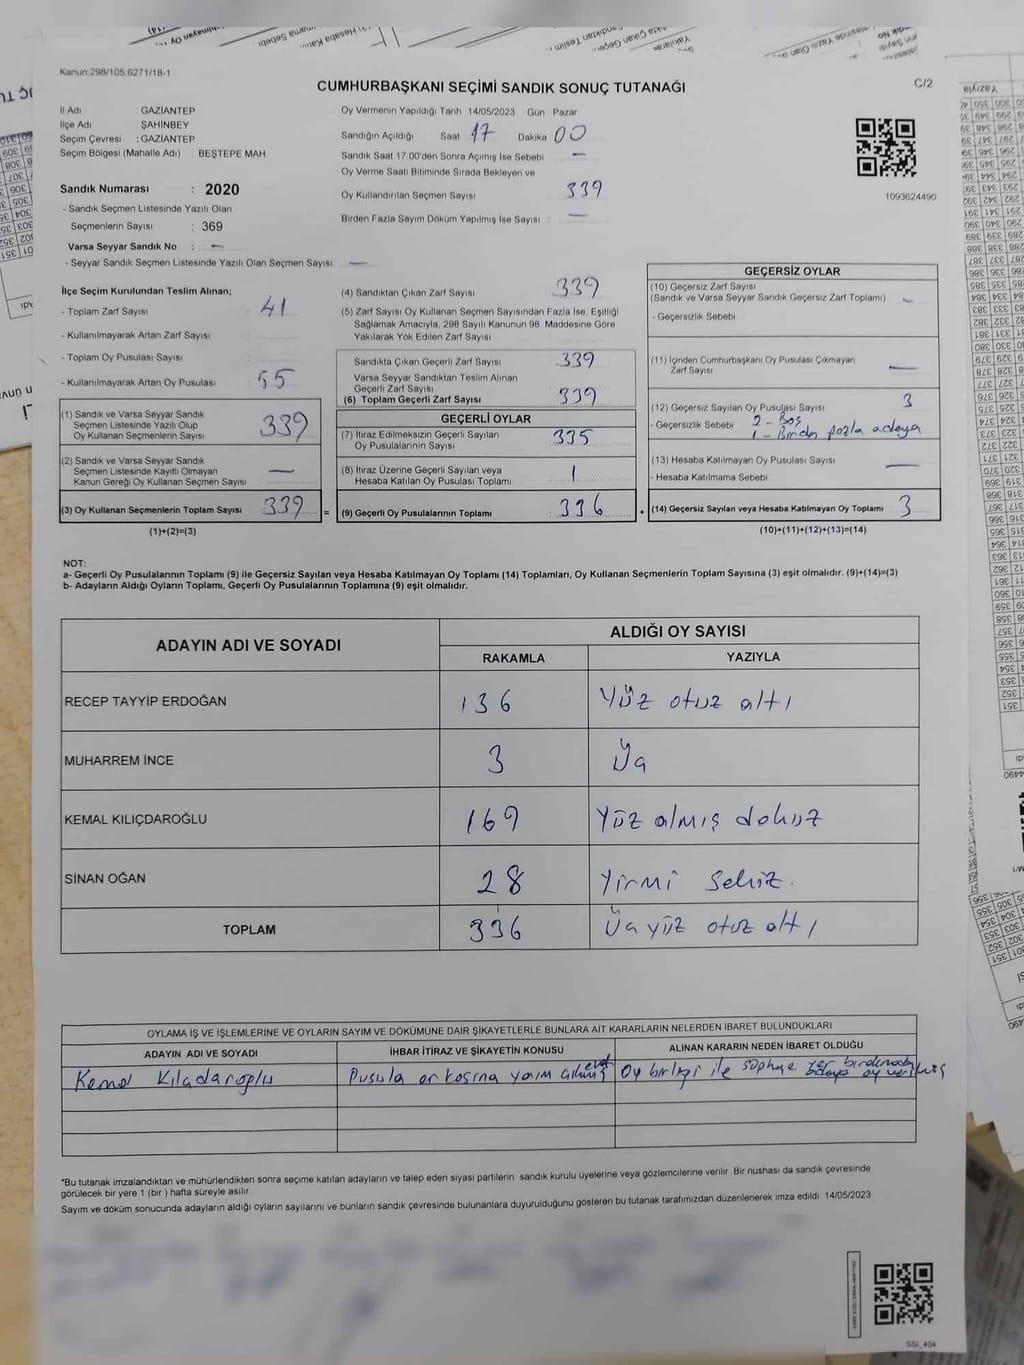 Kanun;298/105,6271/18-1
CUMHURBAŞKANI SEÇİMİ SANDIK SONUÇ TUTANAĞI
C/2
İl Adı : GAZİANTEP
İlçe Adı : ŞAHİNBEY
Seçim Çevresi : GAZİANTEP
Seçim Bölgesi (Mahalle Adı) : BEŞTEPE MAH
Sandık Numarası : 2020
- Sandık Seçmen Listesinde Yazılı Olan
Seçmenlerin Sayısı : 369
Varsa Seyyar Sandık No : —
- Seyyar Sandık Seçmen Listesinde Yazılı Olan Seçmen Sayısı: —
Oy Vermenin Yapıldığı Tarih 14/05/2023 Gün Pazar
Sandığın Açıldığı Saat 17 Dakika 00
Sandık Saat 17.00'den Sonra Açımış İse Sebebi —
Oy Verme Saati Bitiminde Sırada Bekleyen ve
Oy Kullandırılan Seçmen Sayısı 339
Birden Fazla Sayım Döküm Yapılmış İse Sayısı : —
1093624490
İlçe Seçim Kurulundan Teslim Alınan;
- Toplam Zarf Sayısı : 41
- Kullanılmayarak Artan Zarf Sayısı :
- Toplam Oy Pusulası Sayısı :
- Kullanılmayarak Artan Oy Pusulası : 55
(1) Sandık ve Varsa Seyyar Sandık
Seçmen Listesinde Yazılı Olup
Oy Kullanan Seçmenlerin Sayısı : 339
(2) Sandık ve Varsa Seyyar Sandık
Seçmen Listesinde Kayıtlı Olmayan
Kanun Gereği Oy Kullanan Seçmen Sayısı : —
(3) Oy Kullanan Seçmenlerin Toplam Sayısı : 339 =
(1)+(2)=(3)
(4) Sandıktan Çıkan Zarf Sayısı : 339
(5) Zarf Sayısı Oy Kullanan Seçmen Sayısından Fazla İse, Eşitliği
Sağlamak Amacıyla, 298 Sayılı Kanunun 98. Maddesine Göre
Yakılarak Yok Edilen Zarf Sayısı :
Sandıkta Çıkan Geçerli Zarf Sayısı : 339
Varsa Seyyar Sandıktan Teslim Alınan
Geçerli Zarf Sayısı
(6) Toplam Geçerli Zarf Sayısı : 339
GEÇERLİ OYLAR
(7) İtiraz Edilmeksizin Geçerli Sayılan
Oy Pusulasının Sayısı : 335
(8) İtiraz Üzerine Geçerli Sayılan veya
Hesaba Katılan Oy Pusulası Toplamı : 1
(9) Geçerli Oy Pusulalarının Toplamı : 336 +
GEÇERSİZ OYLAR
(10) Geçersiz Zarf Sayısı
(Sandık ve Varsa Seyyar Sandık Geçersiz Zarf Toplamı) : -
- Geçersizlik Sebebi
(11) İçinden Cumhurbaşkanı Oy Pusulası Çıkmayan
Zarf Sayısı : —
(12) Geçersiz Sayılan Oy Pusulası Sayısı : 3
- Geçersizlik Sebebi : 2 - Boş
1 - Birden fazla adaya
(13) Hesaba Katılmayan Oy Pusulası Sayısı : —
- Hesaba Katılmama Sebebi
(14) Geçersiz Sayılan veya Hesaba Katılmayan Oy Toplamı : 3
(10)+(11)+(12)+(13)=(14)
NOT:
a- Geçerli Oy Pusulalarının Toplamı (9) ile Geçersiz Sayılan veya Hesaba Katılmayan Oy Toplamı (14) Toplamları, Oy Kullanan Seçmenlerin Toplam Sayısına (3) eşit olmalıdır. (9)+(14)=(3)
b- Adayların Aldığı Oyların Toplamı, Geçerli Oy Pusulalarının Toplamına (9) eşit olmalıdır.
ADAYIN ADI VE SOYADI
ALDIĞI OY SAYISI
RAKAMLA YAZIYLA
RECEP TAYYİP ERDOĞAN 136 Yüz otuz altı
MUHARREM İNCE 3 Üç
KEMAL KILIÇDAROĞLU 169 Yüz altmış dokuz
SİNAN OĞAN 28 Yirmi sekiz.
TOPLAM 336 Üç yüz otuz altı
OYLAMA İŞ VE İŞLEMLERİNE VE OYLARIN SAYIM VE DÖKÜMÜNE DAİR ŞİKAYETLERLE BUNLARA AİT KARARLARIN NELERDEN İBARET BULUNDUKLARI
ADAYIN ADI VE SOYADI İHBAR İTİRAZ VE ŞİKAYETİN KONUSU ALINAN KARARIN NEDEN İBARET OLDUĞU
Kemal Kılıçdaroğlu Pusula arkasına yarım evet Oy birliği ile
*Bu tutanak imzalandıktan ve mühürlendikten sonra seçime katılan adayların ve talep eden siyasi partilerin sandık kurulu üyelerine veya gözlemcilerine verilir. Bir nüshası da sandık çevresinde
görülecek bir yere 1 (bir ) hafta süreyle asılır.
Sayım ve döküm sonucunda adayların aldığı oyların sayılarını ve bunların sandık çevresinde bulunanlara duyurulduğunu gösteren bu tutanak tarafımızdan düzenlenerek imza edildi. 14/05/2023
SSİ_404